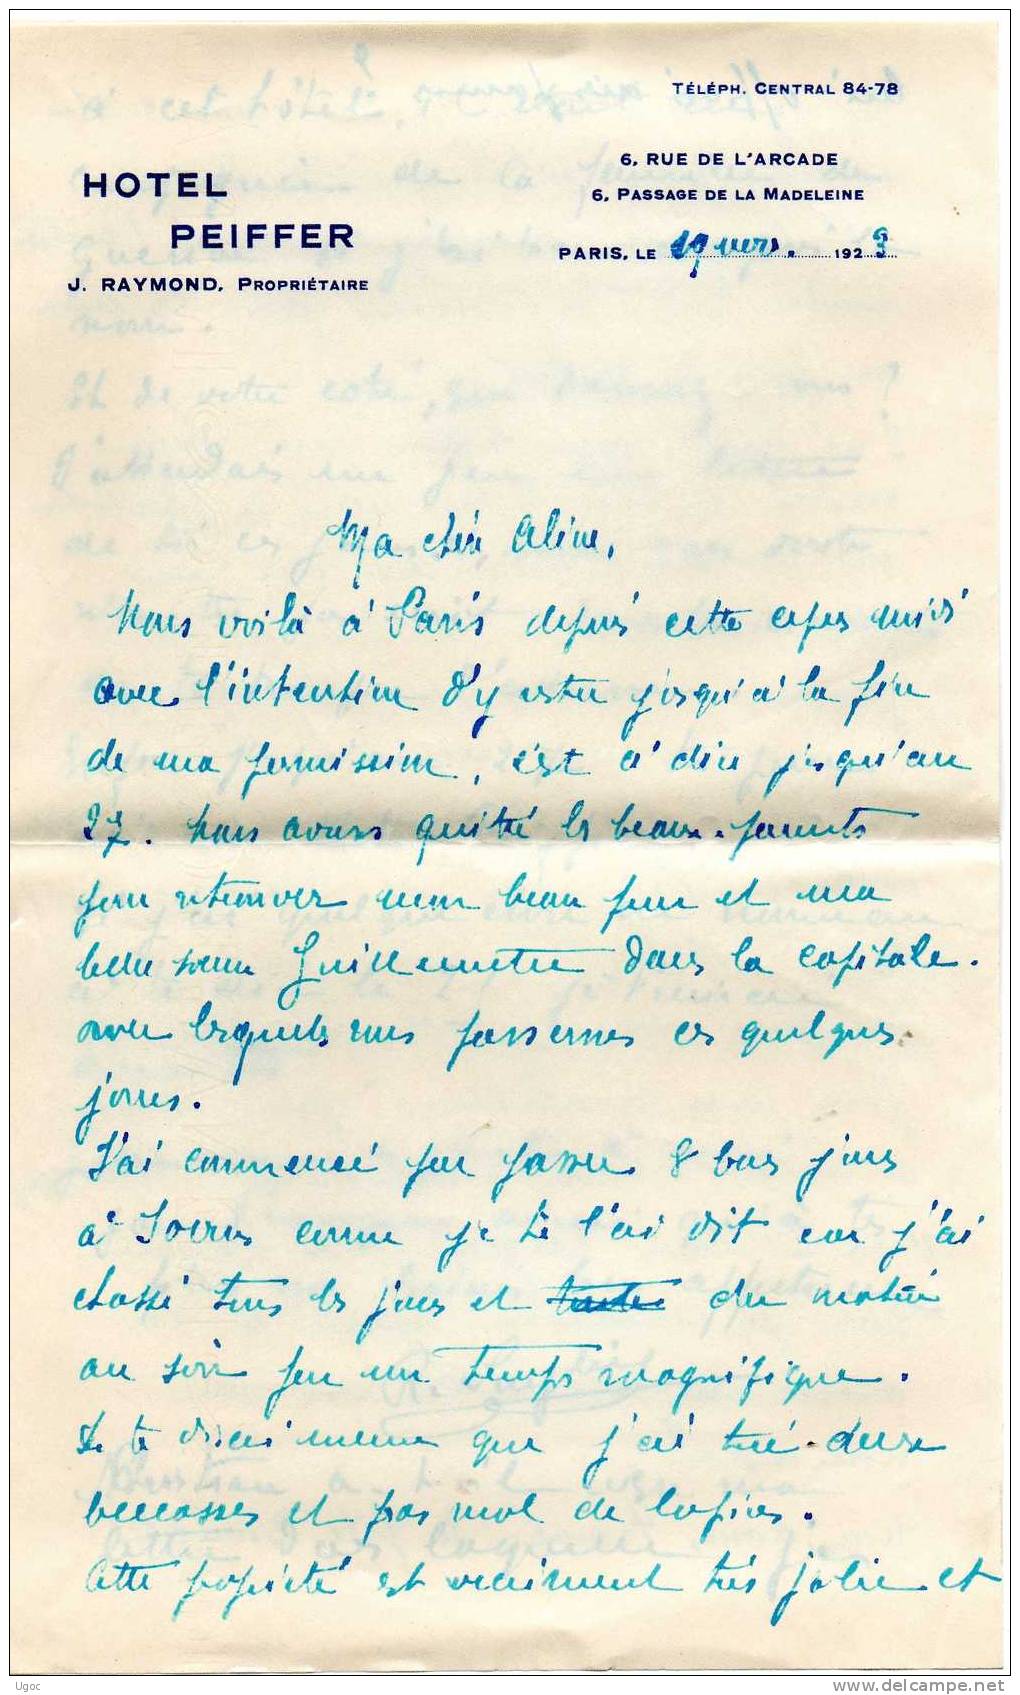 TÉLÉPH. CENTRAL 84-78
6, RUE DE L'ARCADE
6, PASSAGE DE LA MADELEINE
HOTEL
PEIFFER
J. RAYMOND, PROPRIÉTAIRE
PARIS, LE 19 nov. 1923
Ma chère Aline,
Nous voilà à Paris depuis cette après midi
avec l'intention d'y rester jusqu'à la fin
de ma permission, c'est à dire jusqu'au
27. Nous avons quitté les beaux-parents
pour retrouver mon beau frère et ma
belle soeur dans la capitale.
avec lesquels nous passerons ces quelques
jours.
J'ai commencé par passer 8 bons jours
à comme je te l'ai dit car j'ai
chassé tous les jours et du matin
au soir par un temps magnifique.
Je te dirai même que j'ai tué deux
beccasses et pas mal de lapins.
Cette propriété est vraiment très jolie et
Ugoc
delcampe.net